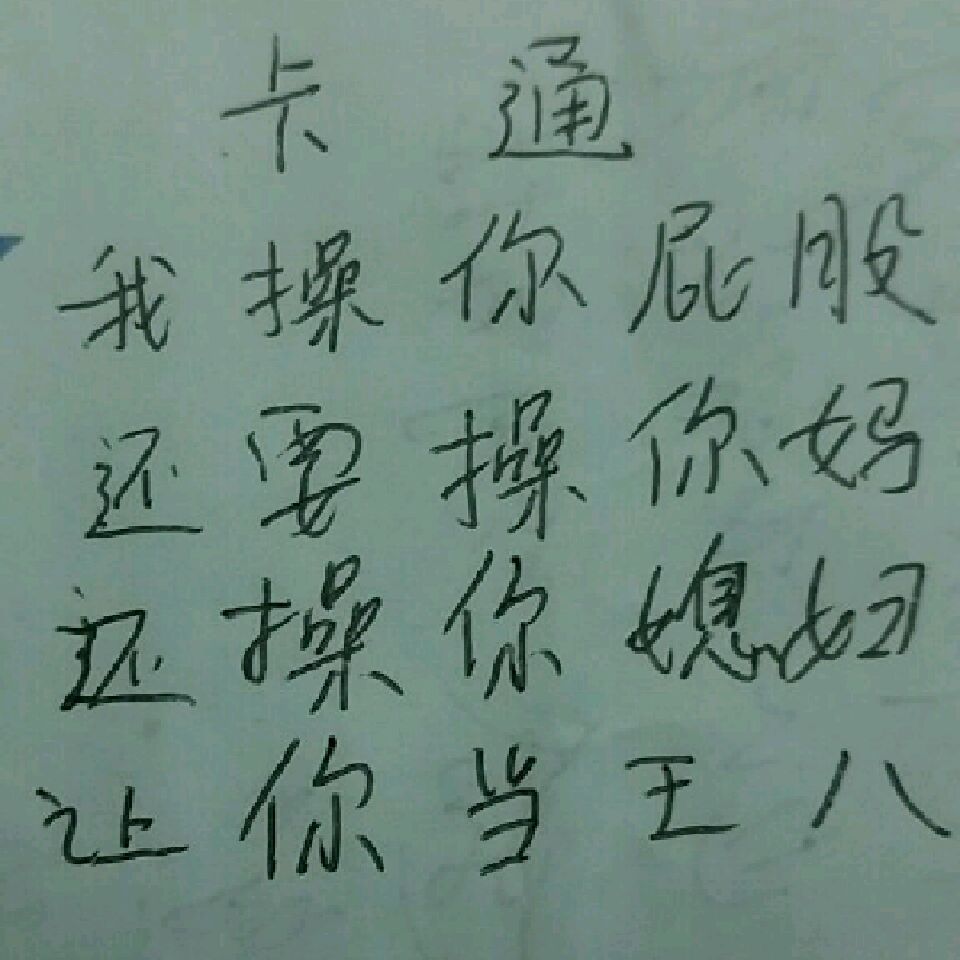 卡通
我操你屁股
还要操你妈
还操你媳妇
让你当王八